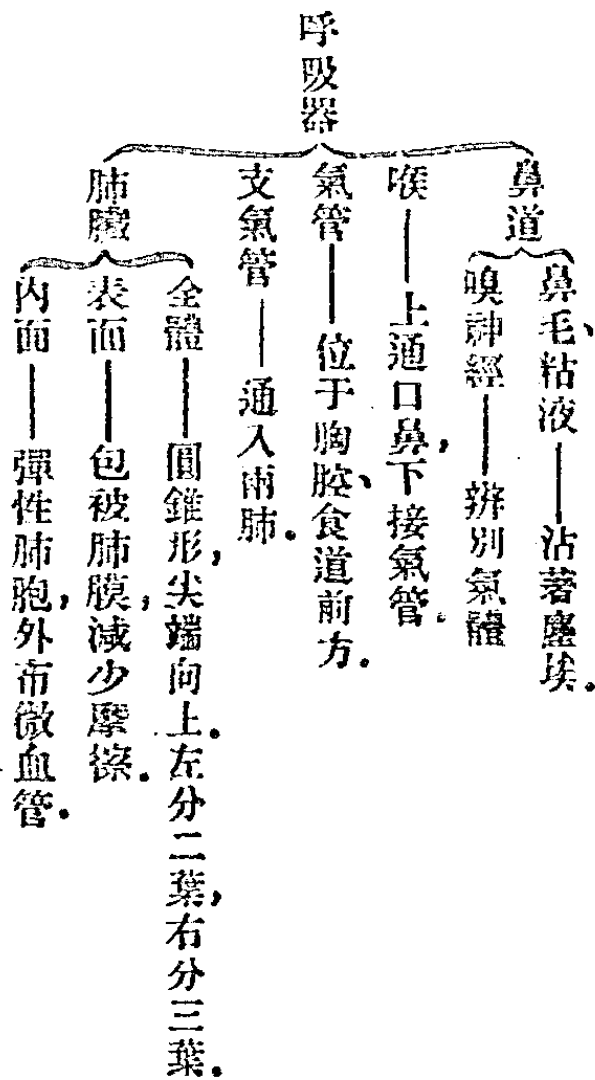 呼吸器
鼻道
鼻毛、粘液——沾著塵埃.
嗅神經——辨別氣體
喉——上通口鼻,下接氣管.
氣管——位于胸腔、食道前方.
支氣管——通入兩肺.
肺臟
全體——圓錐形,尖端向上.左分二葉,右分三葉.
表面——包被肺膜,減少摩擦.
內面——彈性肺胞,外布微血管.